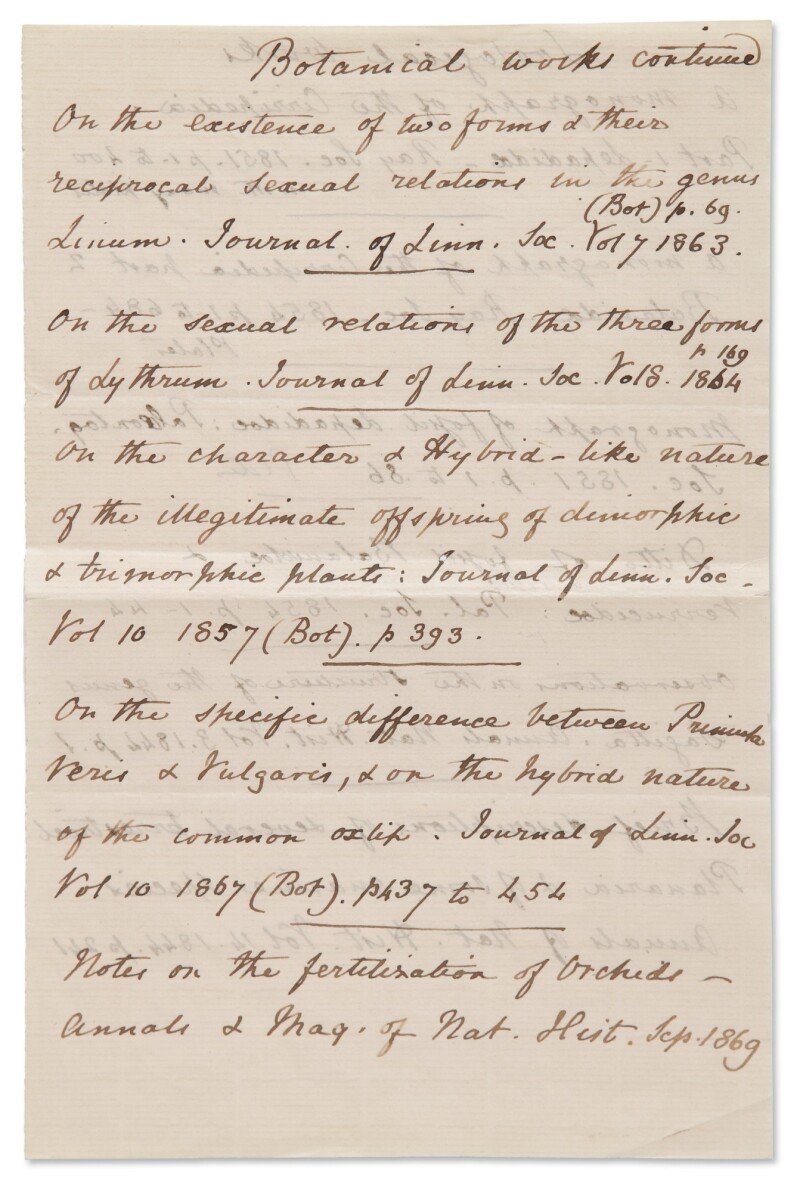 Botanical works continued
On the existence of two forms & their
reciprocal sexual relations in the genus
(Bot) p. 69.
Linum. Journal. of Linn. Soc. Vol 7 1863.
On the sexual relations of the three forms
p 169
of Lythrum. Journal of Linn. Soc. Vol 8. 1864
On the character & Hybrid-like nature
of the illegitimate offspring of dimorphic
& trimorphic plants: Journal of Linn. Soc.
Vol 10 1857 (Bot). p 393.
On the specific difference between Primula
Veris & Vulgaris, & on the hybrid nature
of the common oxlip. Journal of Linn. Soc
Vol 10 1867 (Bot). p437 to 454
Notes on the fertilization of Orchids –
Annals & Mag. of Nat. Hist. Sep. 1869